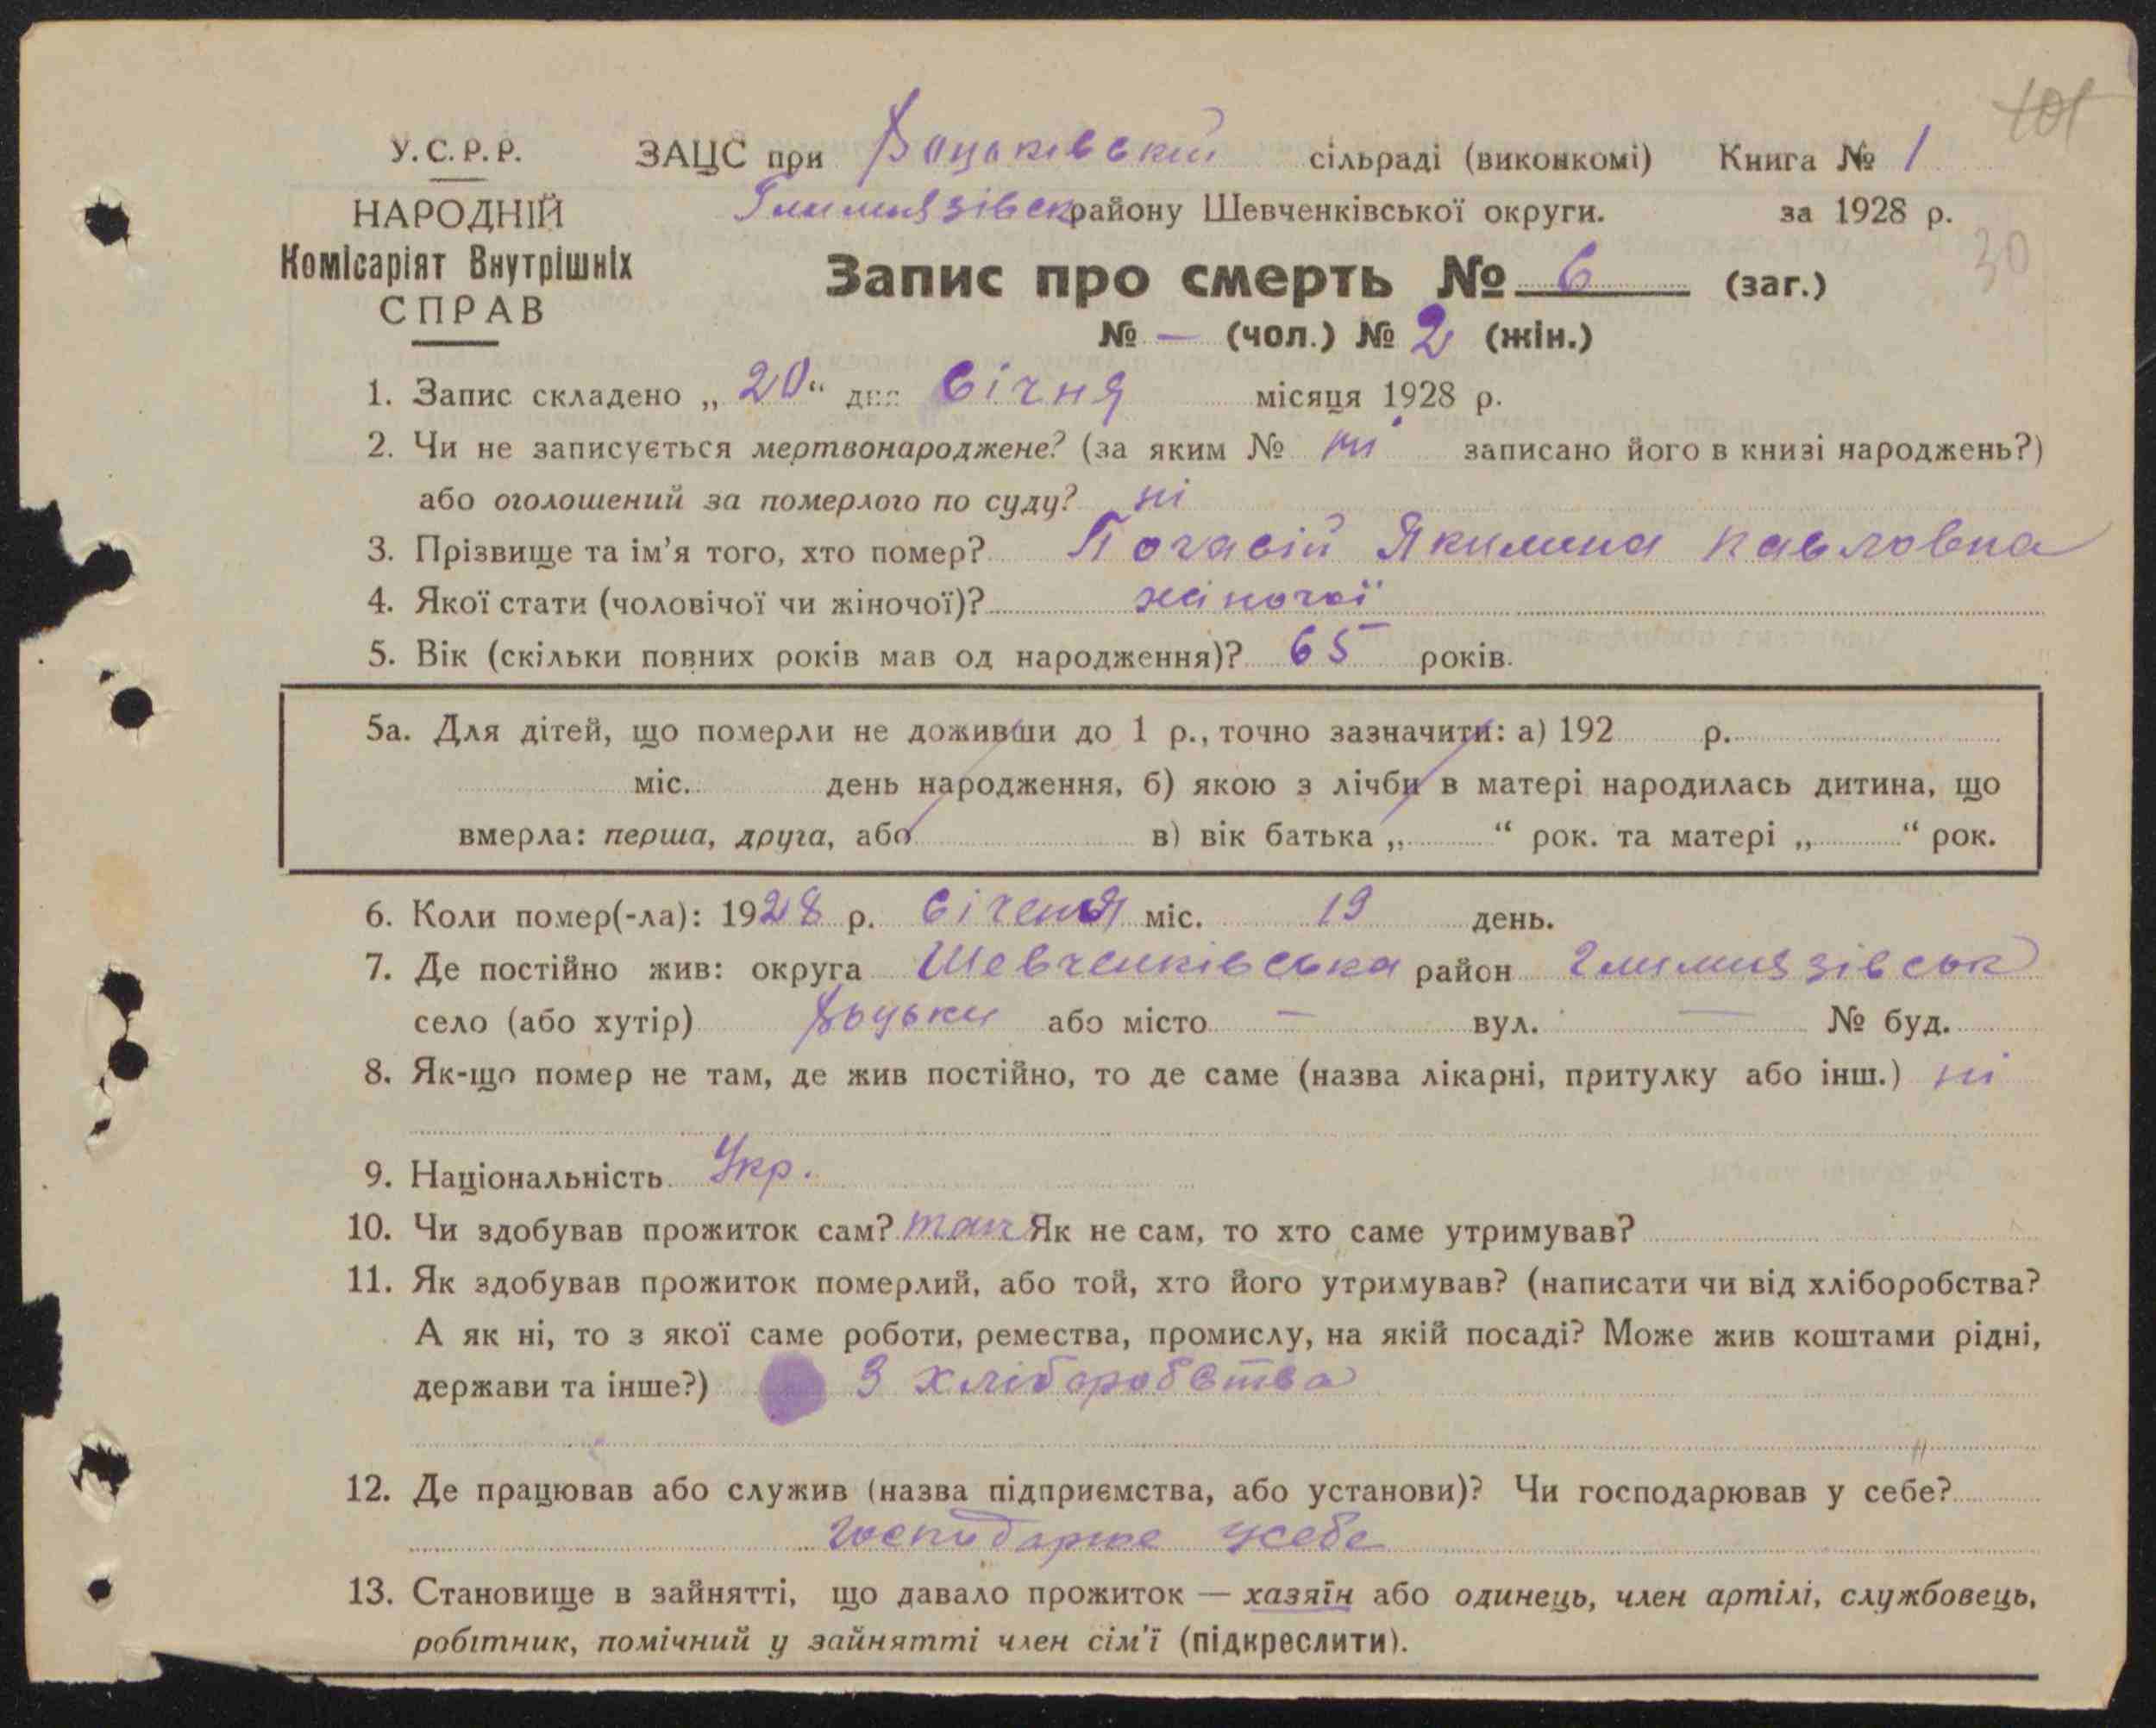 101
У.С.Р.Р. ЗАЦС при Воцьківскій сільраді (виконкомі) Книга № 1
НАРОДНІЙ Глимязівськ району Шевченківської округи. за 1928 р.
30
Комісаріят Внутрішніх
СПРАВ
Запис про смерть № 6 (заг.)
№ — (чол.) № 2 (жін.)
1. Запис складено „ 20 “ дня Січня місяця 1928 р.
2. Чи не записується мертвонароджене? (за яким № ні записано його в книзі народжень?)
або оголошений за померлого по суду? ні
3. Прізвище та ім’я того, хто помер? Якилина Павловна
4. Якої стати (чоловічої чи жіночої)? жіночої
5. Вік (скільки повних років мав од народження)? 65 років.
5а. Для дітей, що померли не доживши до 1 р., точно зазначити: а) 192 р.
міс. день народження, б) якою з лічби в матері народилась дитина, що
вмерла: перша, друга, або в) вік батька „ “ рок. та матері „ “ рок.
6. Коли помер(-ла): 1928 р. Січеня міс. 19 день.
7. Де постійно жив: округа Шевченківська район Глимязівськ
село (або хутір) або місто — вул. — № буд.
8. Як-що помер не там, де жив постійно, то де саме (назва лікарні, притулку або інш.) ні
9. Національність Укр.
10. Чи здобував прожиток сам? так Як не сам, то хто саме утримував?
11. Як здобував прожиток померлий, або той, хто його утримував? (написати чи від хліборобства?
А як ні, то з якої саме роботи, ремества, промислу, на якій посаді? Може жив коштами рідні,
держави та інше?) З хліборобства
12. Де працював або служив (назва підприємства, або установи)? Чи господарював у себе?
господарює усебе
13. Становище в зайнятті, що давало прожиток — хазяїн або одинець, член артілі, службовець,
робітник, помічний у зайнятті член сім’ї (підкреслити).